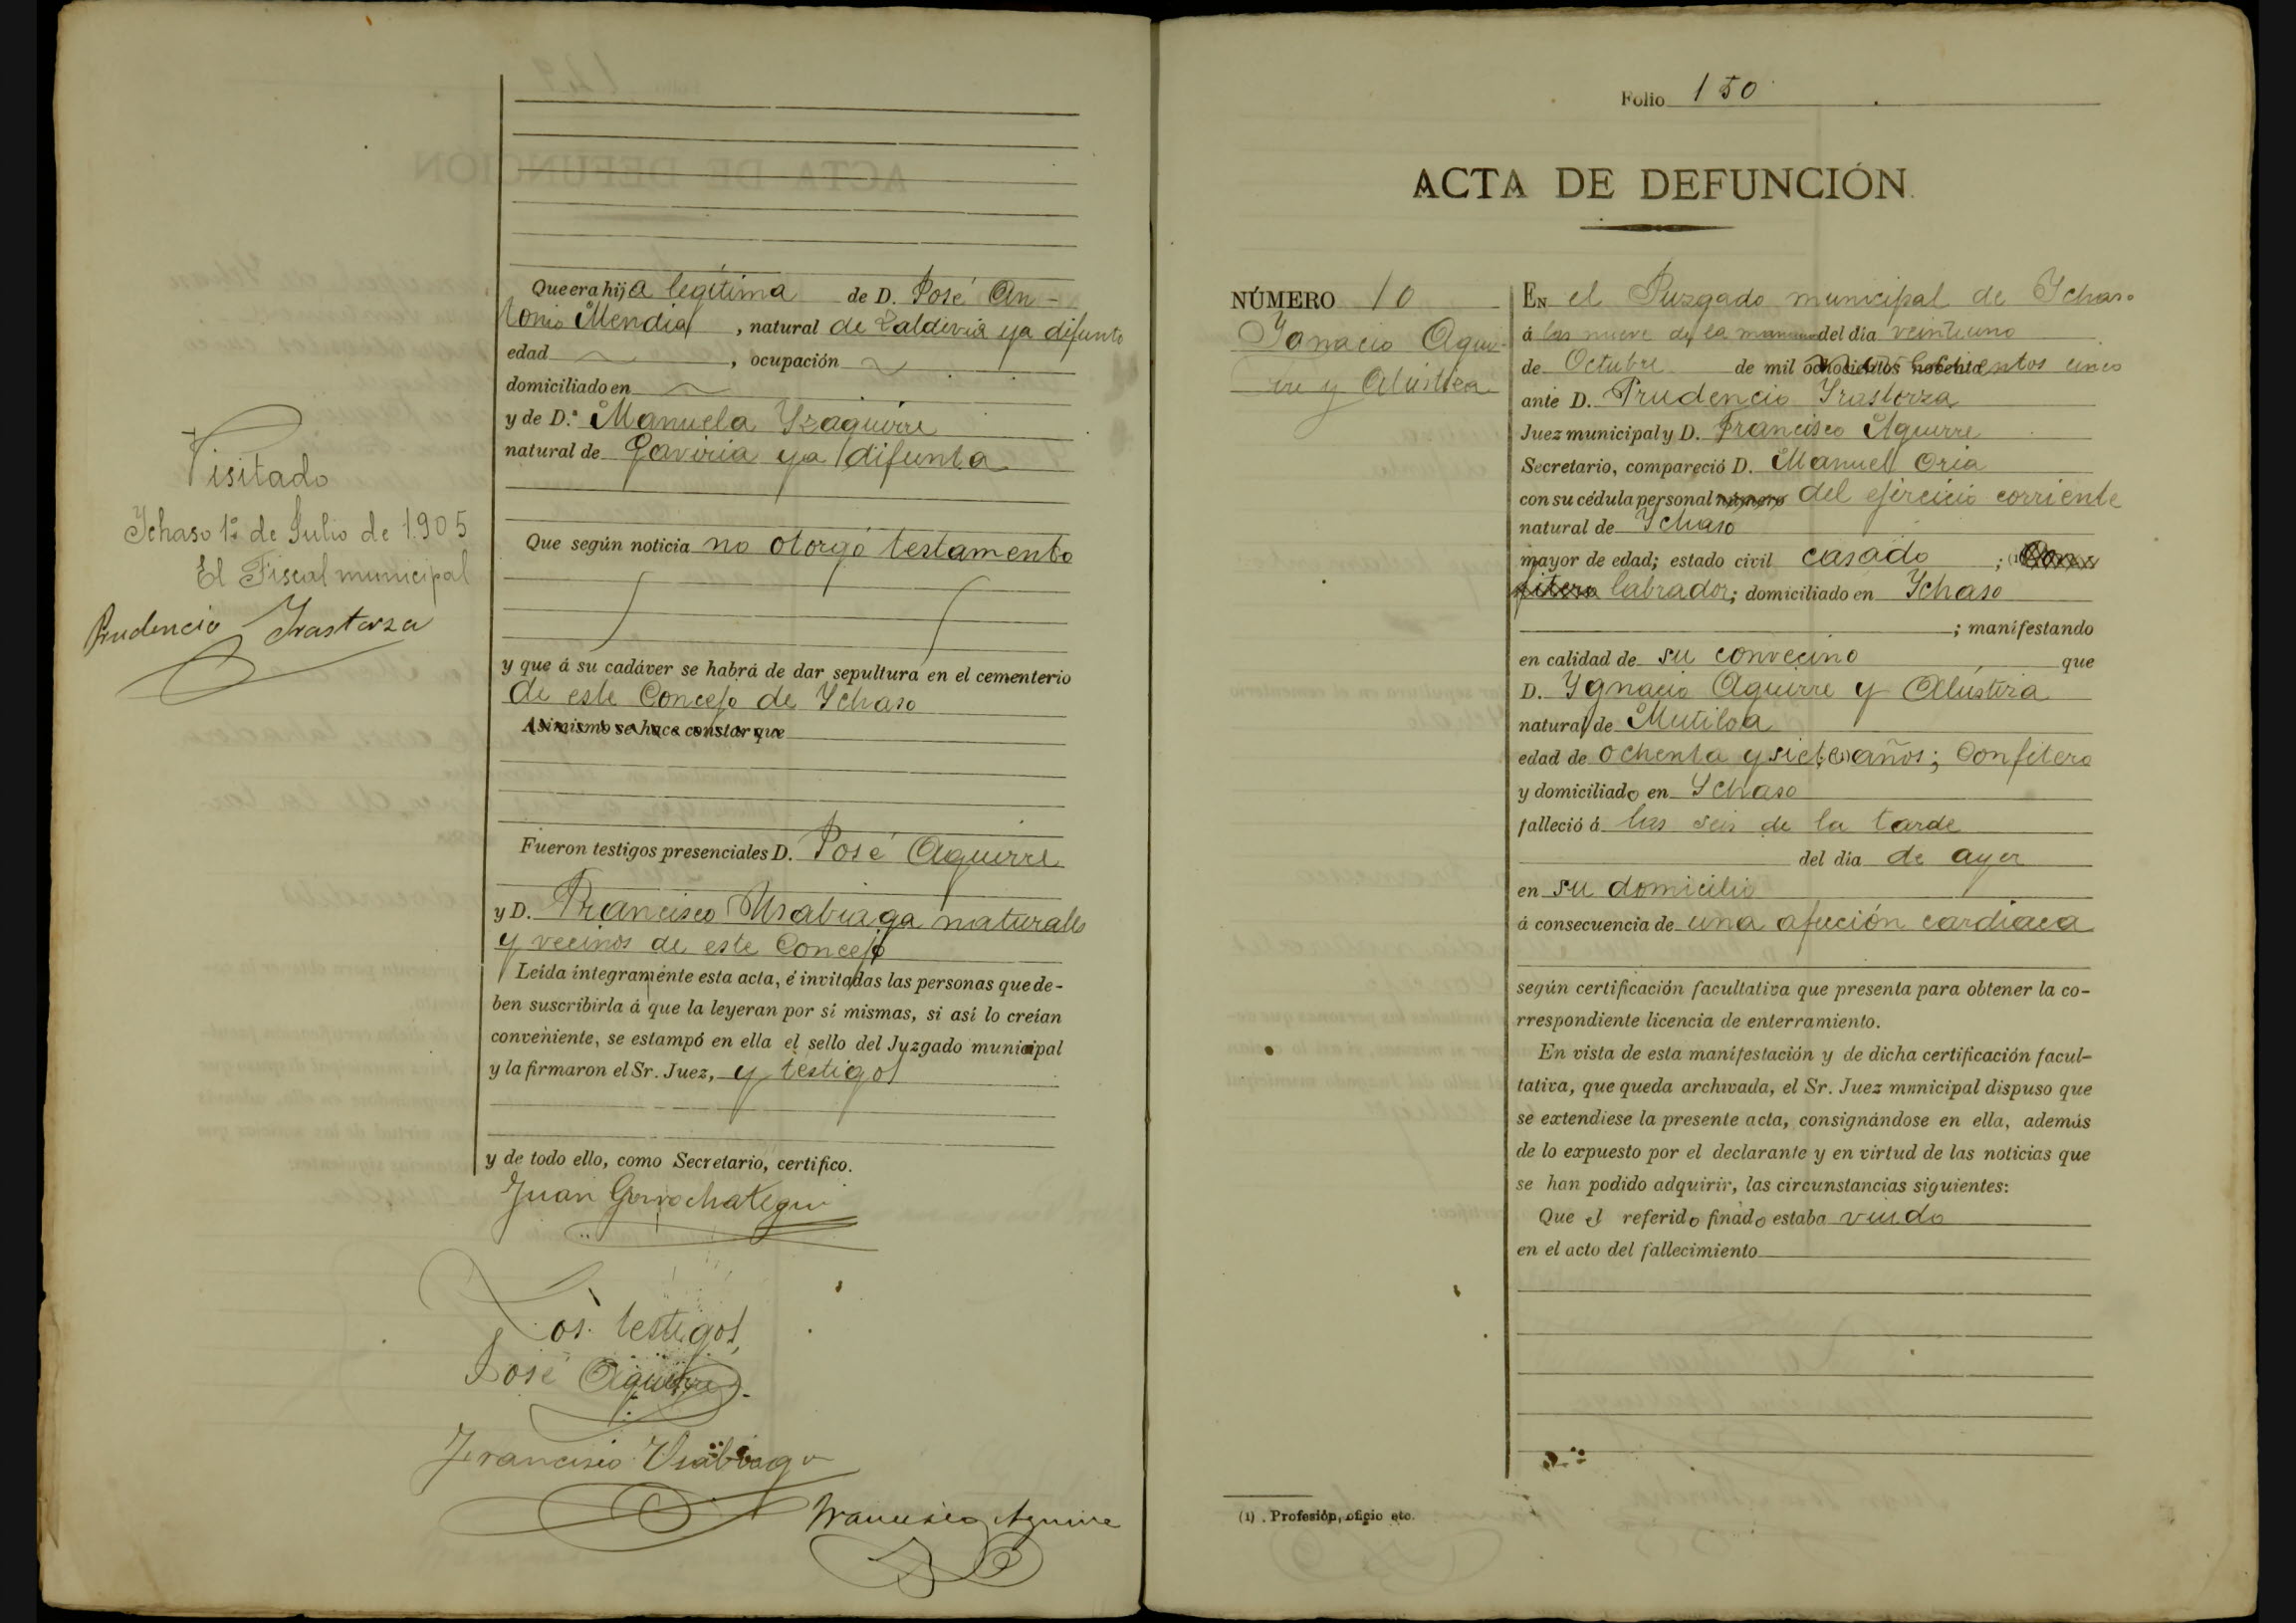 Que era hija legítima de D. José An-
tonio Mendia, natural de Zaldivia ya difunto
edad , ocupación
domiciliado en
y de D.ª Manuela Yzaguirre
natural de Gaviria ya difunta
Que según noticia no otorgó testamento
y que á su cadáver se habrá de dar sepultura en el cementerio
de este Concejo de Ychaso
Asimismo se hace constar que
Fueron testigos presenciales D. José Aguirre
y D. Francisco Usabiaga naturales
y vecinos de este Concejo
Leída íntegramente esta acta, é invitadas las personas que de-
ben suscribirla á que la leyeran por sí mismas, si así lo creían
conveniente, se estampó en ella el sello del Juzgado municipal
y la firmaron el Sr. Juez, y testigos
y de todo ello, como Secretario, certifico.
Juan Gorrochategui
Los testigos,
José Aguirre
Francisco Usabiaga
Francisco Aguirre
Visitado
Ychaso 1º de Julio de 1905
El Fiscal municipal
Prudencio Yrastorza
Folio 150
ACTA DE DEFUNCIÓN.
NÚMERO 10
Ygnacio Agui-
rre y Alústiza
EN el Juzgado municipal de Ychaso
á las nueve de la mañana del día veintiuno
de Octubre de mil ochocientos noventa cinco
ante D. Prudencio Yrastorza
Juez municipal y D. Francisco Aguirre
Secretario, compareció D. Manuel Oria
con su cédula personal número del ejercicio corriente
natural de Ychaso
mayor de edad; estado civil casado ; (1) Con
fitero labrador; domiciliado en Ychaso
; manifestando
en calidad de su convecino que
D. Ygnacio Aguirre y Alústiza
natural de Mutiloa
edad de ochenta y siete años; Confitero
y domiciliado en Ychaso
falleció á las seis de la tarde
del día de ayer
en su domicilio
á consecuencia de una afección cardiaca
según certificación facultativa que presenta para obtener la co-
rrespondiente licencia de enterramiento.
En vista de esta manifestación y de dicha certificación facul-
tativa, que queda archivada, el Sr. Juez municipal dispuso que
se extendiese la presente acta, consignándose en ella, además
de lo expuesto por el declarante y en virtud de las noticias que
se han podido adquirir, las circunstancias siguientes:
Que el referido finado estaba viudo
en el acto del fallecimiento
(1) . Profesión, oficio etc.